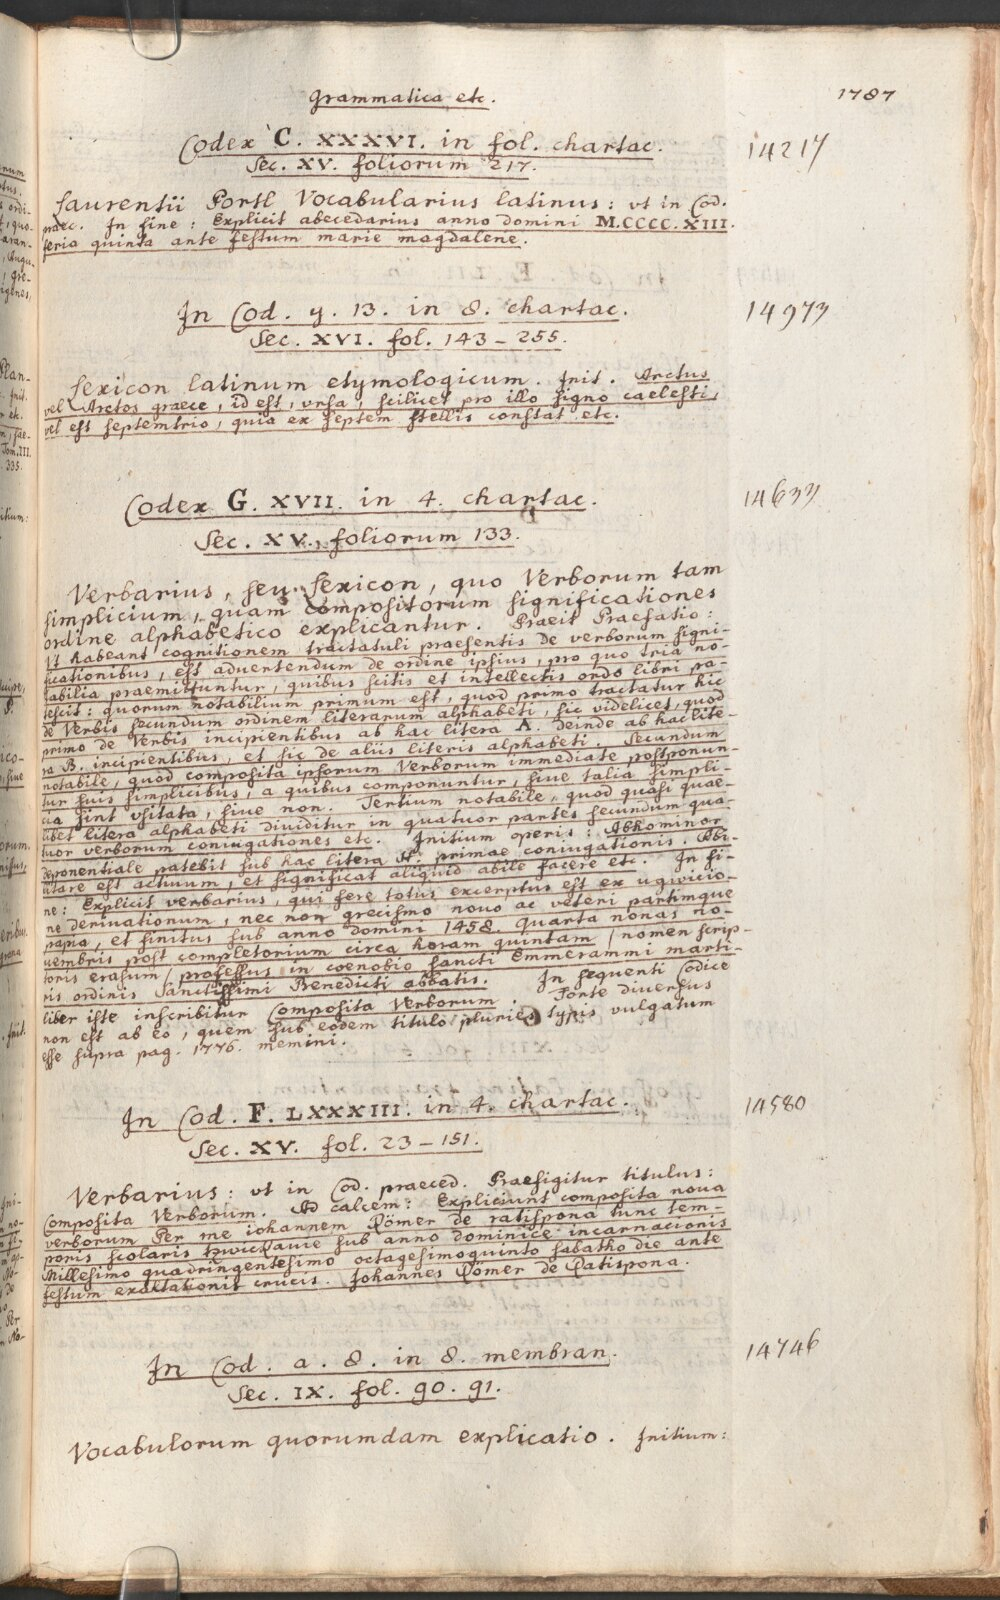 Grammatica etc.
1787
Codex C. XXXVI. in fol. chartac.
14217
Sec. XV. foliorum 217.
Laurentii Portl Vocabularius latinus: vt in Cod.
praec. In fine: Explicit abecedarius anno domini M.CCCC.XIII.
feria quinta ante festum marie magdalene.
In Cod. y. 13. in 8. chartac.
14973
Sec. XVI. fol. 143-255.
Lexicon latinum etymologicum. Init. Arctus
vel Arctos graece, id est, vrsa, scilicet pro illo signo caelesti,
vel est septemtrio, quia ex septem stellis constat etc.
Codex G. XVII. in 4. chartac.
14633
Sec. XV. foliorum 133.
Verbarius, seu Lexicon, quo Verborum tam
simplicium, quam compositorum significationes
ordine alphabetico explicantur. Praeit Praefatio:
Vt habeant cognitionem tractatuli praesentis de verborum signi-
ficationibus, est aduertendum de ordine ipsius, pro quo tria no-
tabilia praemittuntur, quibus scitis et intellectis ordo libri pa-
tescit: quorum notabilium primum est, quod primo tractatur hic
de Verbis secundum ordinem literarum alphabeti, sic videlicet, quod
primo de Verbis incipientibus ab hac litera A. Deinde ab hac lite-
ra B. incipientibus, et sic de aliis literis alphabeti. Secundum
notabile, quod composita ipsorum Verborum immediate postponun-
tur suis simplicibus, a quibus componuntur, siue talia simpli-
cia sint vsitata, siue non. Tertium notabile, quod quasi quae-
libet litera alphabeti diuiditur in quatuor partes secundum qua-
tuor verborum coniugationes etc. Initium operis: Abhominor
deponentiale patebit sub hac litera A. primae coniugationis. Abi-
litare est actiuum, et significat aliquid abile facere etc. In fi-
ne: Explicit verbarius, qui fere totus excerptus est ex ugwicio-
ne deriuationum, nec non grecismo nouo ac veteri partimque
papia, et finitus sub anno domini 1458. Quarta nonas no-
uembris post completorium circa horam quintam / nomen scrip-
toris erasum / professus in coenobio sancti Emmerammi marti-
ris ordinis Sanctissimi Benedicti abbatis. In sequenti Codice
liber iste inscribitur Composita Verborum. Forte diuersus
non est ab eo, quem sub eodem titulo pluries typis vulgatum
esse supra pag. 1776. memini.
In Cod. F. LXXXIII. in 4. chartac.
14580
Sec. XV. fol. 23-151.
Verbarius: vt in Cod. praeced. Praefigitur titulus:
Composita Verborum. Ad calcem: Expliciunt composita noua
verborum Per me iohannem Römer de ratispona tunc tem-
poris scolaris Zwickauie sub anno dominice incarnacionis
Millesimo quadringentesimo octagesimoquinto sabatho die ante
festum exaltationis crucis. Johannes Römer de Ratispona.
In Cod. a. 8. in 8. membran.
14746
Sec. IX. fol. 90. 91.
Vocabulorum quorumdam explicatio. Initium: